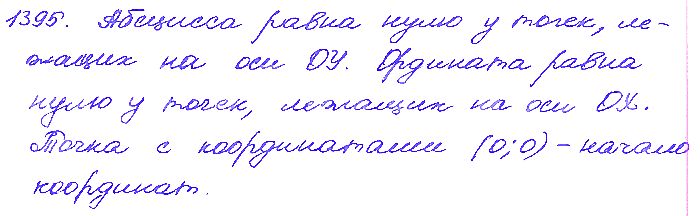 1395. Абсцисса равна нулю у точек, ле-
жащих на оси ОУ. Ордината равна
нулю у точек, лежащих на оси ОХ.
Точка с координатами (0;0) - начало
координат.